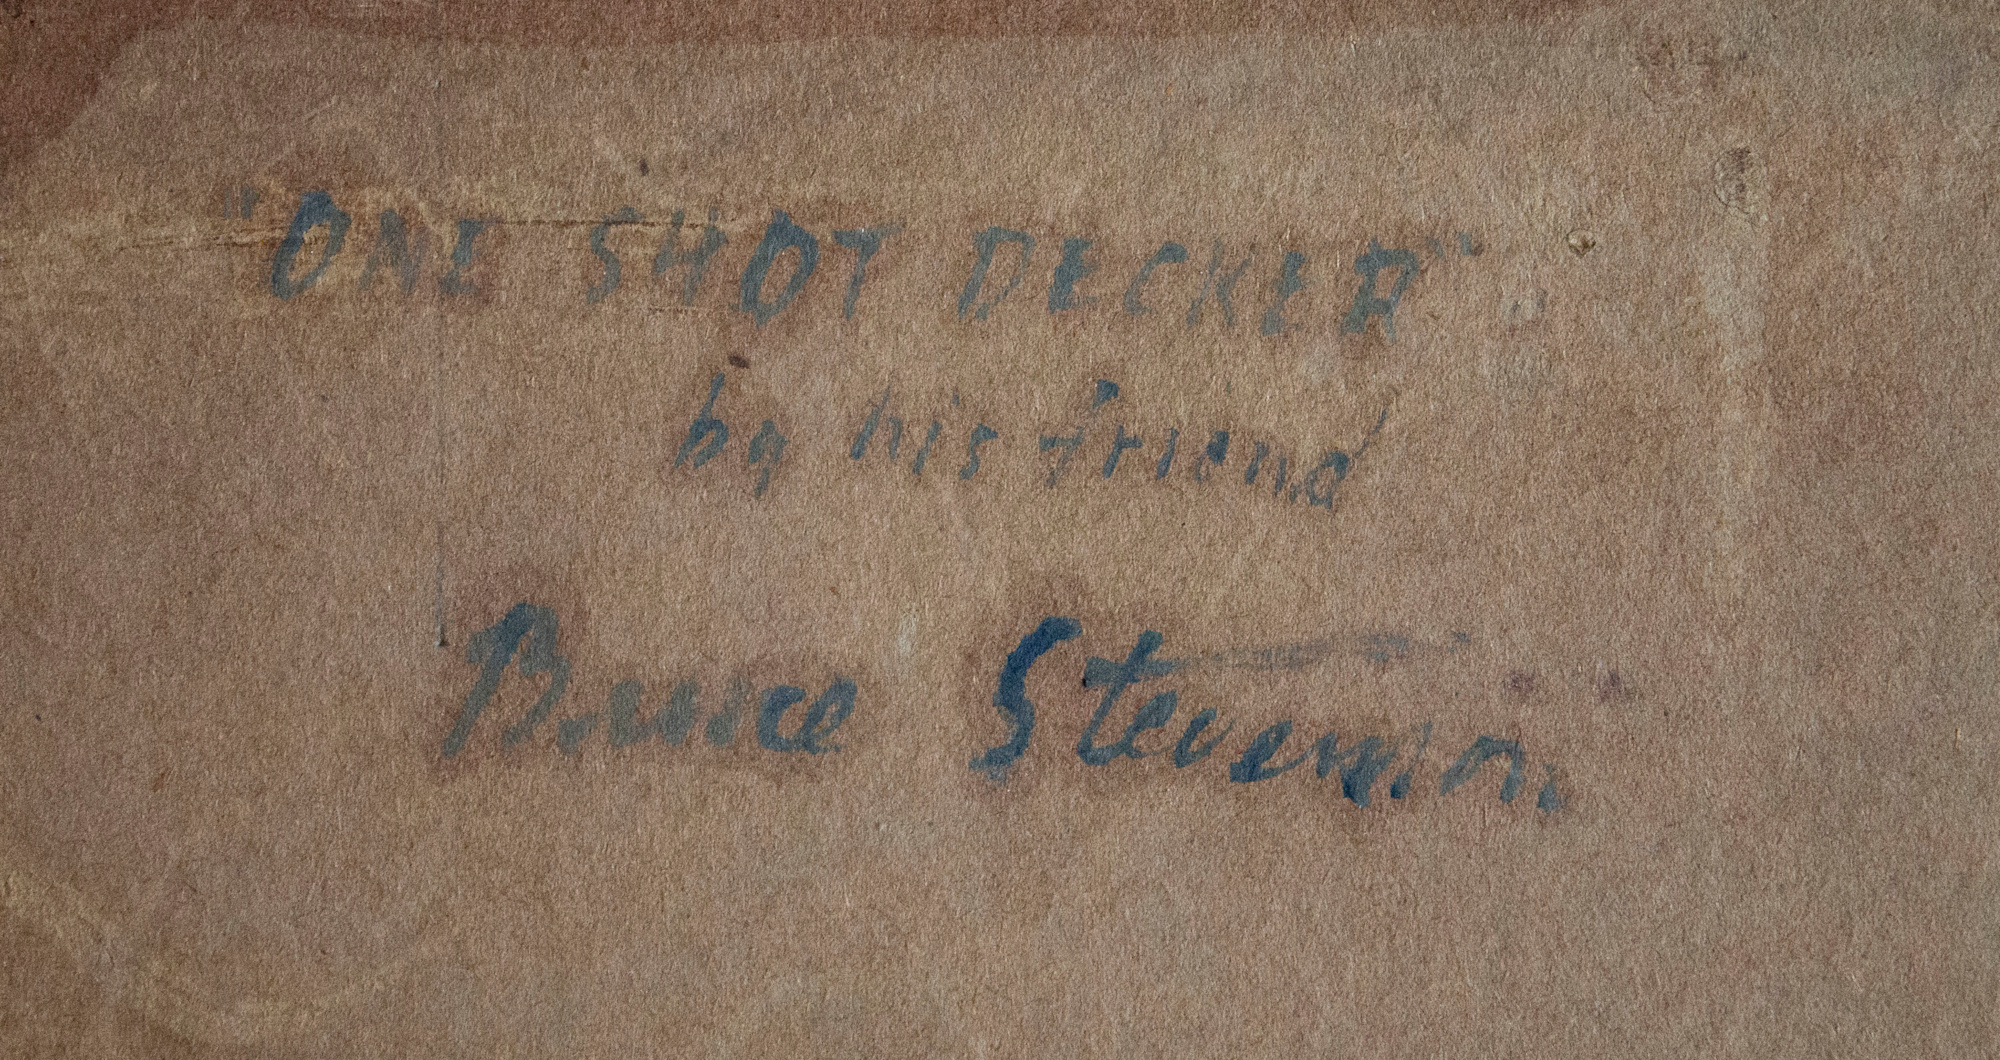 "ONE SHOT DECKER"
by his friend
Bruce Stevenson